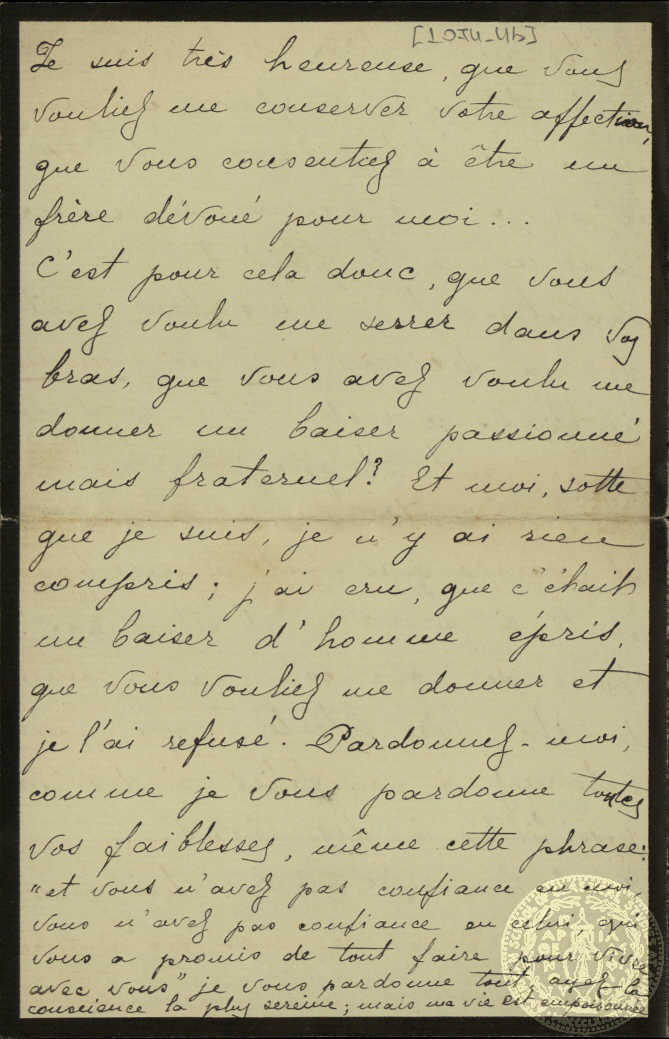 [1074-4b]
Je suis très heureuse, que vous
vouliez me conserver votre affection,
que vous consentiez à être un
frère dévoué pour moi...
C'est pour cela donc, que vous
avez voulu me serrer dans vos
bras, que vous avez voulu me
donner un baiser passionné
mais fraternel? Et moi, sotte
que je suis, je n'y ai rien
compris; j'ai cru, que c'était
un baiser d'homme épris,
que vous vouliez me donner et
je l'ai refusé. Pardonnez-moi,
comme je vous pardonne toutes
vos faiblesses, même cette phrase:
"et vous n'avez pas confiance en moi,
vous n'avez pas confiance en celui, qui
vous a promis de tout faire pour vivre
avec vous" je vous pardonne tout, ayez la
conscience la plus sereine; mais ma vie est empoisonnée